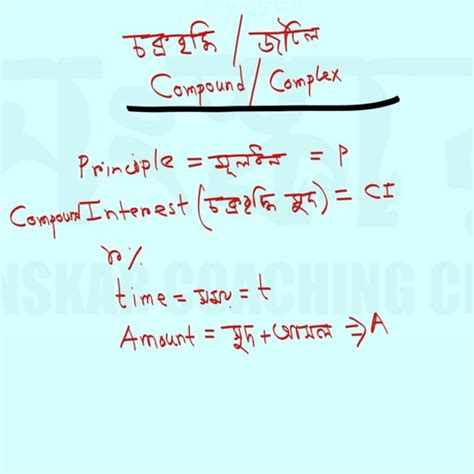 চক্রবৃদ্ধি / জটিল
Compound / Complex
Principle = মূলধন = P
Compound Interest (চক্রবৃদ্ধি সুদ) = CI
r%
time = সময় = t
Amount = সুদ + আসল ⇒ A
NSKAR COACHING C